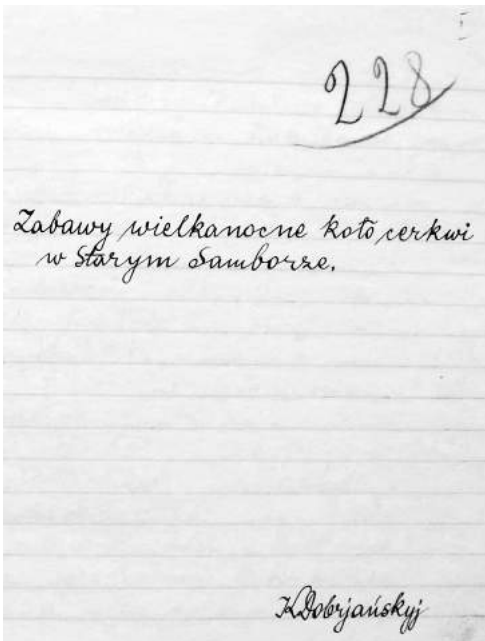 228
Zabawy wielkanocne koło cerkwi
w Starym Samborze.
KDobrjańskyj